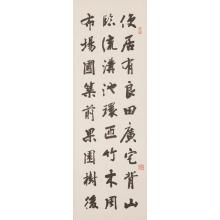 使居有良田廣宅背山
臨流溝池環匝竹木周
布場圃築前果園樹後